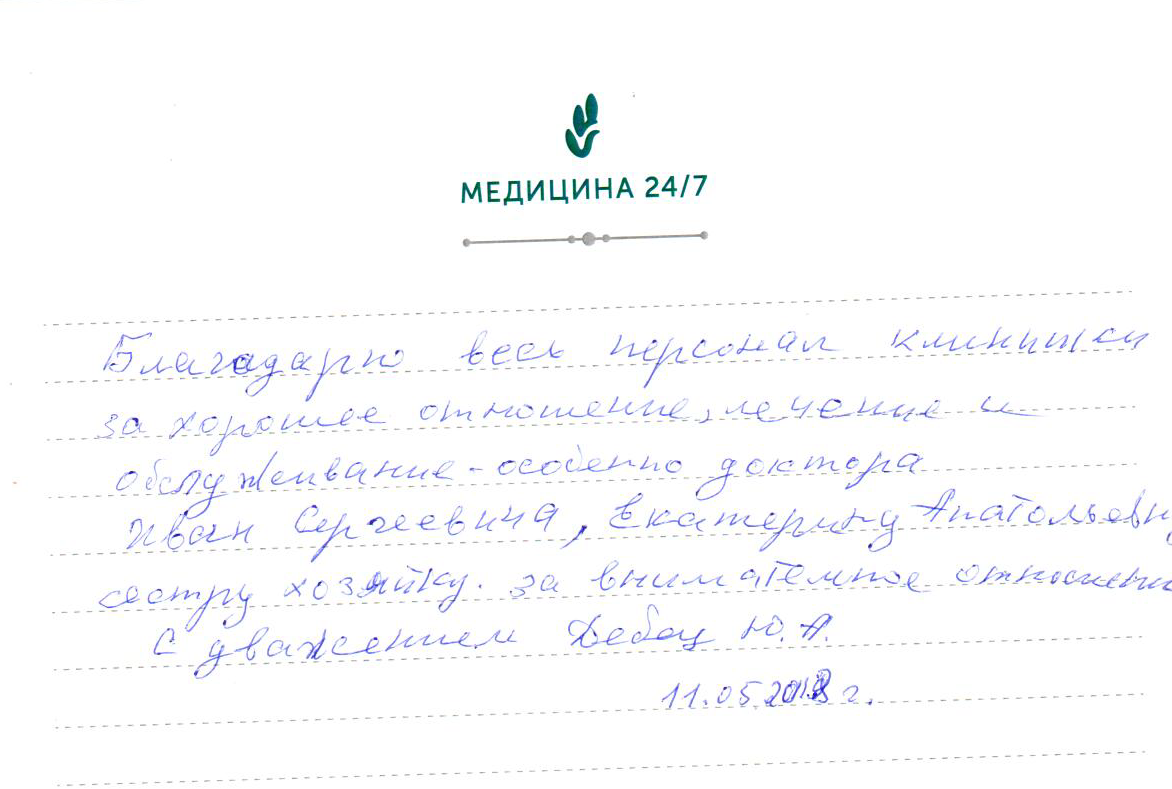 МЕДИЦИНА 24/7
Благодарю весь персонал клиники
за хорошее отношение, лечение и
обслуживание - особенно доктора
Иван Сергеевича, Екатерину Анатольевну
сестру хозяйку. за внимательное отношение
С уважением Дебец Ю.А.
11.05.2018 г.